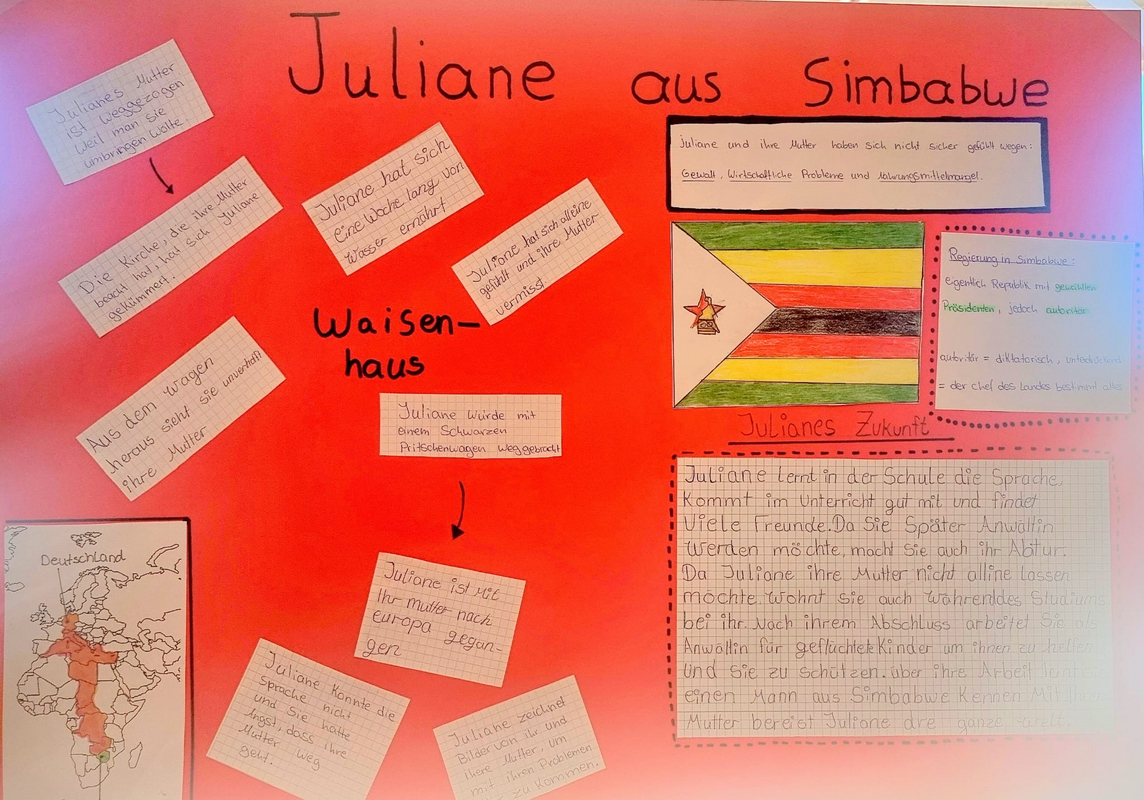 Juliane aus Simbabwe
Julianes Mutter
ist weggezogen
weil man sie
umbringen wollte.
Die Kirche, die ihre Mutter
beacht hat, hat sich Juliane
gekümmert.
Aus dem Wagen
heraus sieht sie unverhofft
ihre Mutter
Juliane hat sich
eine Woche lang von
Wasser ernährt
Juliane hat sich alleine
gefühlt und ihre Mutter
vermisst
Waisen-
haus
Juliane wurde mit
einem Schwarzen
Pritschenwagen weggebracht
Juliane ist mit
Ihr mutter nach
europa gegan-
gen
Juliane konnte die
sprache nicht
und Sie hatte
Angst, dass ihre
Mutter weg
geht.
Juliane zeichnet
Bilder von ihr und
ihere Mutter, um
mit ihren Problemen
zu kommen.
Deutschland
juliane und ihre Mutter haben sich nicht sicher gefühlt wegen:
Gewalt, Wirtschaftliche Probleme und Nahrungsmittelmangel.
Regierung in Simbabwe:
eigentlich Republik mit gewählten
Präsidenten, jedoch autoritär
autoritär = diktatorisch, unterdrückend
= der Chef des Landes bestimmt alles
Julianes Zukunft
Juliane lernt in der Schule die Sprache,
Kommt im Unterricht gut mit und findet
Viele Freunde. Da Sie Später Anwältin
Werden möchte, macht Sie auch ihr Abitur.
Da Juliane ihre Mutter nicht alline lassen
möchte, Wohnt sie auch Währenddes Studiums
bei ihr. Nach ihrem Abschluss arbeitet Sie als
Anwältin für geflüchtete Kinder um ihnen zu helfen
Und Sie zu schützen. über ihre Arbeit
einen Mann aus Simbabwe Kennen Mit
Mutter bereist Juliane dre ganze